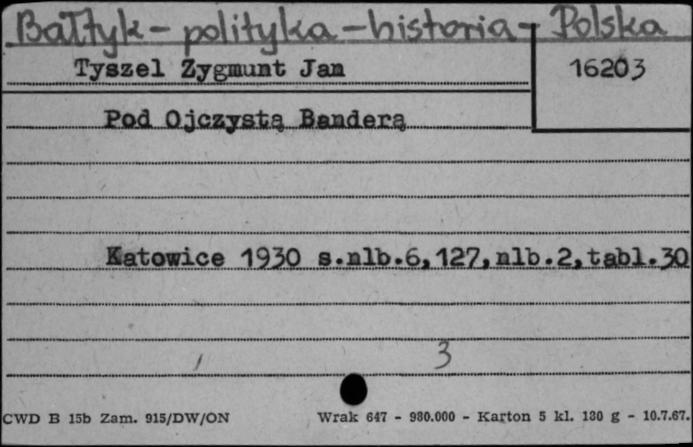 Bałtyk - polityka - historia - Polska
Tyszel Zygmunt Jan
16203
Pod Ojczystą Banderą
Katowice 1930 s.nlb.6,127,nlb.2,tabl.30
3
CWD B 15b Zam. 915/DW/ON Wrak 647 - 980.000 - Karton 5 kl. 180 g - 10.7.67.